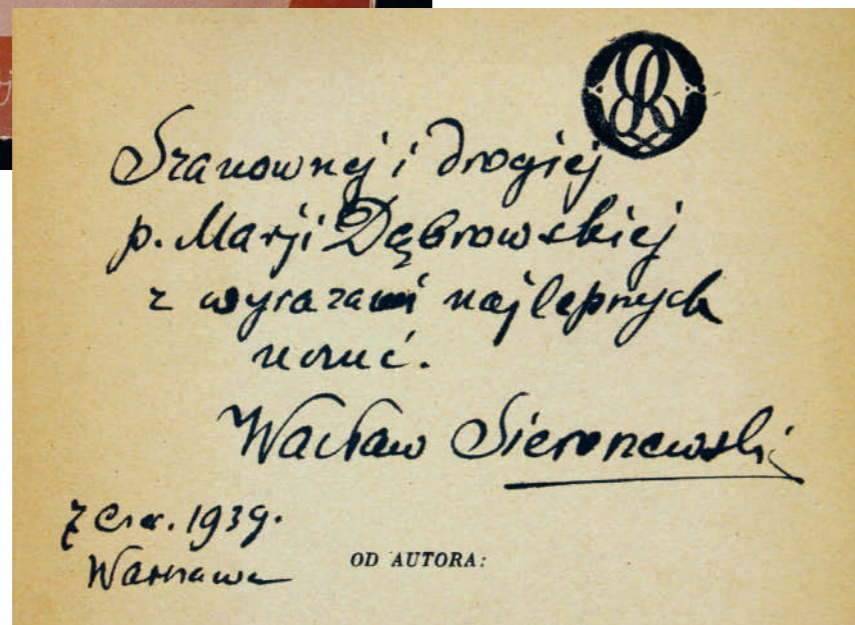 Szanownej i drogiej
p. Marji Dąbrowskiej
z wyrazami najlepszych
uczuć.
Wacław Sieroszewski
7 Cze. 1939.
Warszawa
OD AUTORA: